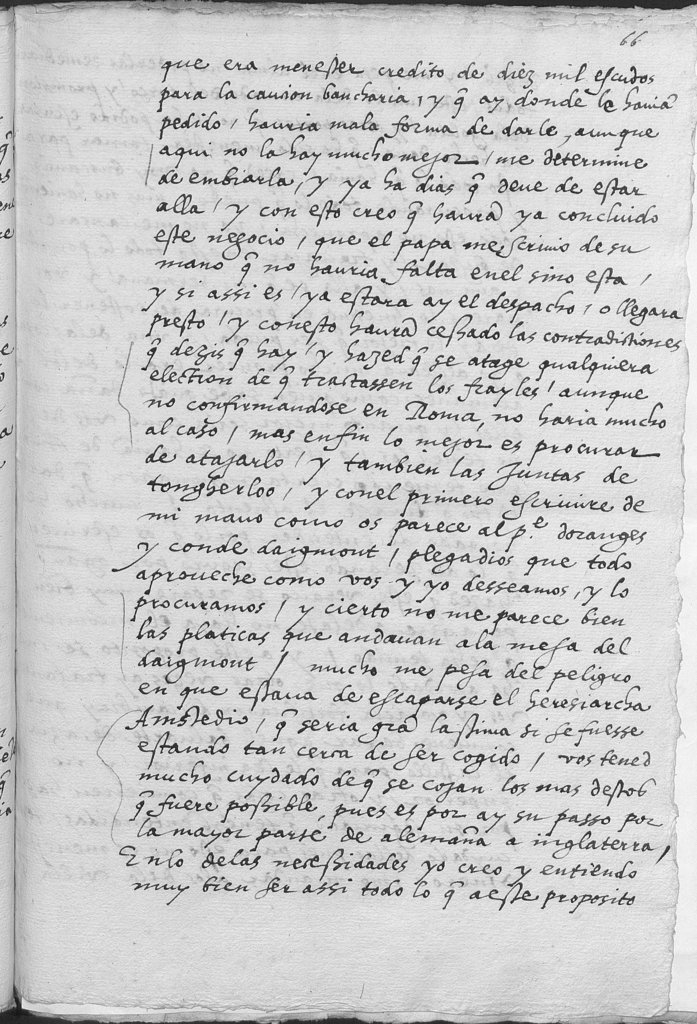 66
que era menester credito de diez mil escudos
para la caucion bancharia, y q̃ ay donde le haviã
pedido, hauria mala forma de darle, aunque
aqui no la hay mucho mejor, me determine
de embiarla, y ya ha dias q̃ deue de estar
alla, y con esto creo q̃ haura ya concluido
este negocio, que el papa me scriuio de su
mano q̃ no hauria falta en el sino esta,
y si assi es, ya estara ay el despacho, o llegara
presto, y conesto haura cessado las contraditiones
q̃ dezis q̃ hay, y hazed q̃ se atage qualquiera
election de q̃ tractassen los frayles, aunque
no confirmandose en Roma, no haria mucho
al caso, mas enfin lo mejor es procurar
de atajarlo, y tambien las Juntas de
tongherloo, y conel primero escriuire de
mi mano como os parece al p.e doranges
y conde daigmont, plegadios que todo
aproueche como vos y yo desseamos, y lo
procuramos, y cierto no me parece bien
las platicas que andauan ala mesa del
daigmont, mucho me pesa del peligro
en que estaua de escaparse el heresiarcha
Amstedio, q̃ seria grã lastima si se fuesse
estando tan cerca de ser cogido, vos tened
mucho cuydado de q̃ se cojan los mas destos
q̃ fuere possible, pues es por ay su passo por
la mayor parte de alemaña a inglaterra,
Enlo delas necessidades yo creo y entiendo
muy bien ser assi todo lo q̃ aeste proposito